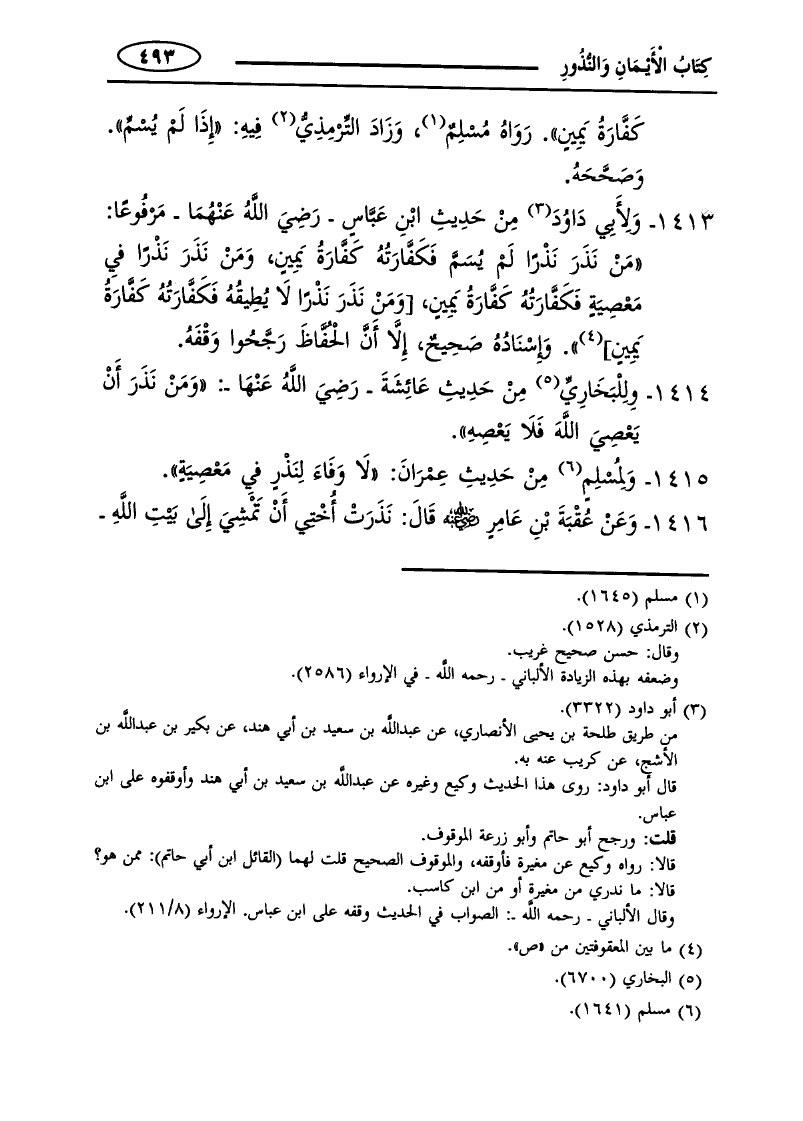 كِتَابُ الْأَيْمَانِ وَالنُّذُورِ ٤٩٣
كَفَّارَةُ يَمِينٍ». رَوَاهُ مُسْلِمٌ(١)، وَزَادَ التِّرْمِذِيُّ(٢) فِيهِ: «إِذَا لَمْ يُسْمِّ».
وَصَحَّحَهُ.
١٤١٣ـ وَلِأَبِي دَاوُدَ(٣) مِنْ حَدِيثِ ابْنِ عَبَّاسٍ ـ رَضِيَ اللَّهُ عَنْهُمَا ـ مَرْفُوعًا:
«مَنْ نَذَرَ نَذْرًا لَمْ يُسَمَّ فَكَفَّارَتُهُ كَفَّارَةُ يَمِينٍ، وَمَنْ نَذَرَ نَذْرًا فِي
مَعْصِيَةٍ فَكَفَّارَتُهُ كَفَّارَةُ يَمِينٍ، [وَمَنْ نَذَرَ نَذْرًا لَا يُطِيقُهُ فَكَفَّارَتُهُ كَفَّارَةُ
يَمِينٍ](٤)». وَإِسْنَادُهُ صَحِيحٌ، إِلَّا أَنَّ الْحُفَّاظَ رَجَّحُوا وَقْفَهُ.
١٤١٤ـ وَلِلْبَخَارِيِّ(٥) مِنْ حَدِيثِ عَائِشَةَ ـ رَضِيَ اللَّهُ عَنْهَا ـ: «وَمَنْ نَذَرَ أَنْ
يَعْصِيَ اللَّهَ فَلَا يَعْصِهِ».
١٤١٥ـ وَلِمُسْلِمٍ(٦) مِنْ حَدِيثِ عِمْرَانَ: «لَا وَفَاءَ لِنَذْرٍ فِي مَعْصِيَةٍ».
١٤١٦ـ وَعَنْ عُقْبَةَ بْنِ عَامِرٍ رضي الله عنه قَالَ: نَذَرَتْ أُخْتِي أَنْ تَمْشِيَ إِلَىٰ بَيْتِ اللَّهِ ـ
(١) مسلم (١٦٤٥).
(٢) الترمذي (١٥٢٨).
وقال: حسن صحيح غريب.
وضعفه بهذه الزيادة الألباني ـ رحمه اللَّه ـ في الإرواء (٢٥٨٦).
(٣) أبو داود (٣٣٢٢).
من طريق طلحة بن يحيى الأنصاري، عن عبداللَّه بن سعيد بن أبي هند، عن بكير بن عبداللَّه بن
الأشج، عن كريب عنه به.
قال أبو داود: روى هذا الحديث وكيع وغيره عن عبداللَّه بن سعيد بن أبي هند وأوقفوه على ابن
عباس.
قلت: ورجح أبو حاتم وأبو زرعة الموقوف.
قالا: رواه وكيع عن مغيرة فأوقفه، والموقوف الصحيح قلت لهما (القائل ابن أبي حاتم): ممن هو؟
قالا: ما ندري من مغيرة أو من ابن كاسب.
وقال الألباني ـ رحمه اللَّه ـ: الصواب في الحديث وقفه على ابن عباس. الإرواء (٢١١/٨).
(٤) ما بين المعقوفتين من «ص».
(٥) البخاري (٦٧٠٠).
(٦) مسلم (١٦٤١).